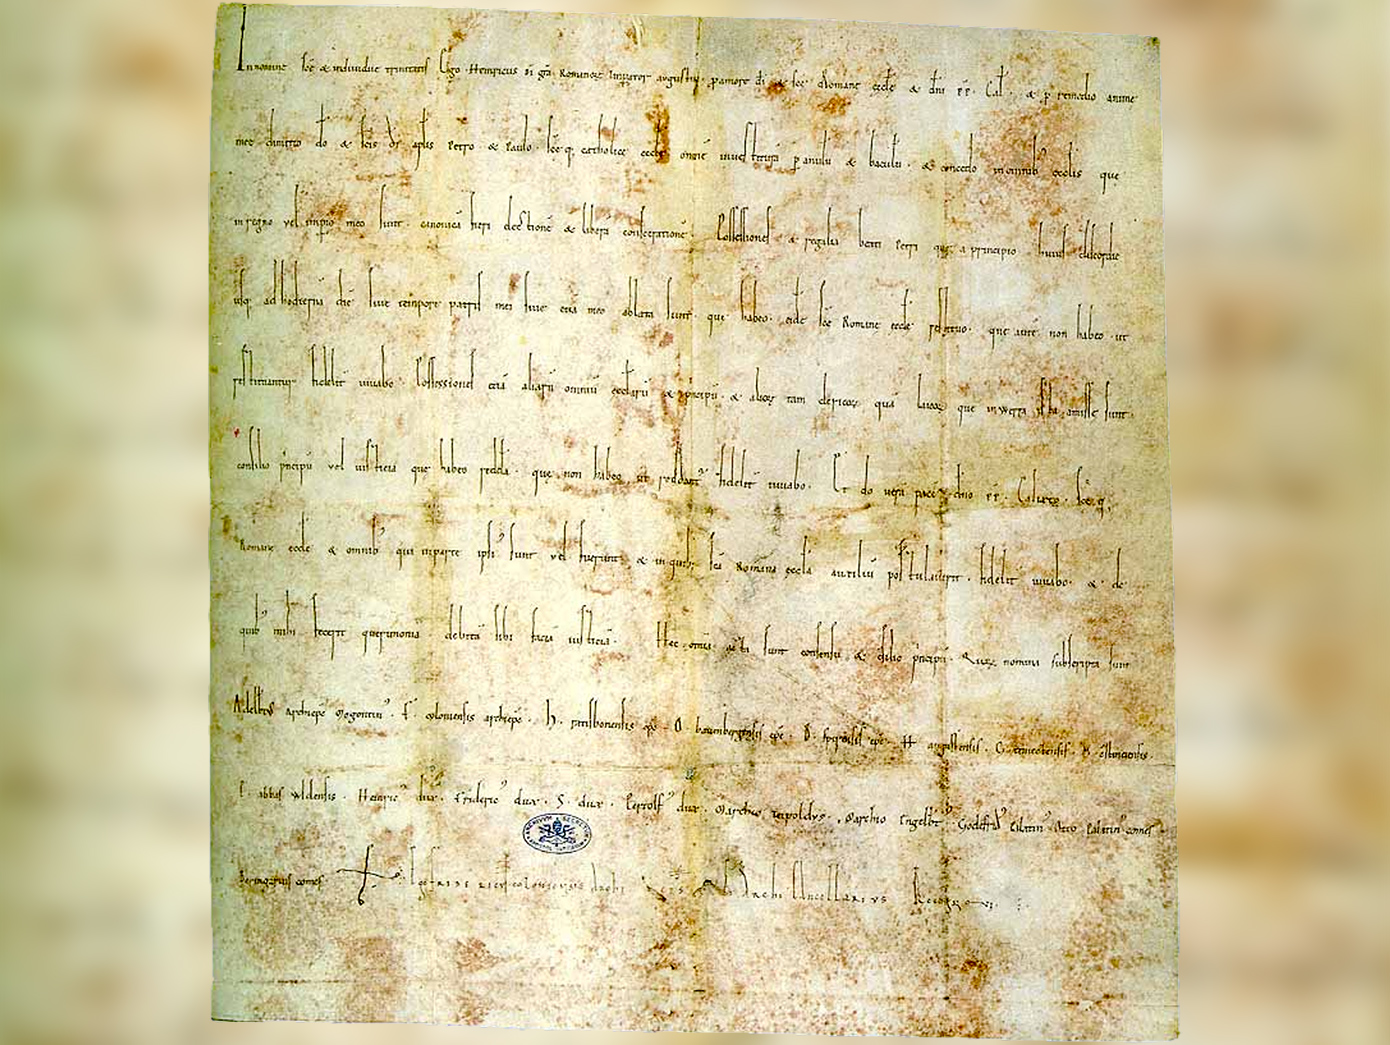 In nomine sce & individue trinitatis Ego Heinricus di gra Romanorz Imperator augustus p amore di & sce Romane eccle & dni pp Cal & p remedio anime
mee dimitto do & scis di aplis Petro & Paulo sceq catholice eccle omne investitura p anulu & baculu & concedo in omnib ecclis que
in regno vel impio meo sunt canonica fieri electione & libera consecratione Possessiones & regalia beati Petri que a principio huius discordie
usq ad hodierna die sive tempore patris mei sive etia meo ablata sunt que habeo eide sce Romane eccle restituo que aute non habeo ut
restituantur fideliter iuvabo Possessiones etia aliaru omniu ecclaru & principu & alioz tam clericoz qua laicoz que in werra ista amisse sunt
consilio principu vel iusticia que habeo redda que non habeo ut reddant fideliter iuvabo Et do vera pace dno pp Calixto sceq
Romane eccle & omnib qui in parte ipsi sunt vel fuerunt & in quib sca Romana eccla auxiliu postulaverit fideliter iuvabo & de
quib mihi fecerit querimonia debita sibi facia iusticia Hec omia acta sunt consensu & csilio principu Quoz nomina subscripta sunt
Adelbtus archiepc Mogontin F coloniensis archiepc H ratisbonensis epc O bauenbergensis epc B spirensis epc H augustensis G traiectensis
E abbas uuldensis Heinric dux Fridericus dux S dux Pertolf dux Marchio teipoldus Marchio Engelbt Godefrd Palatin Otto Palatin comes
Beringarius comes
ARCHIVVM SECRETVM